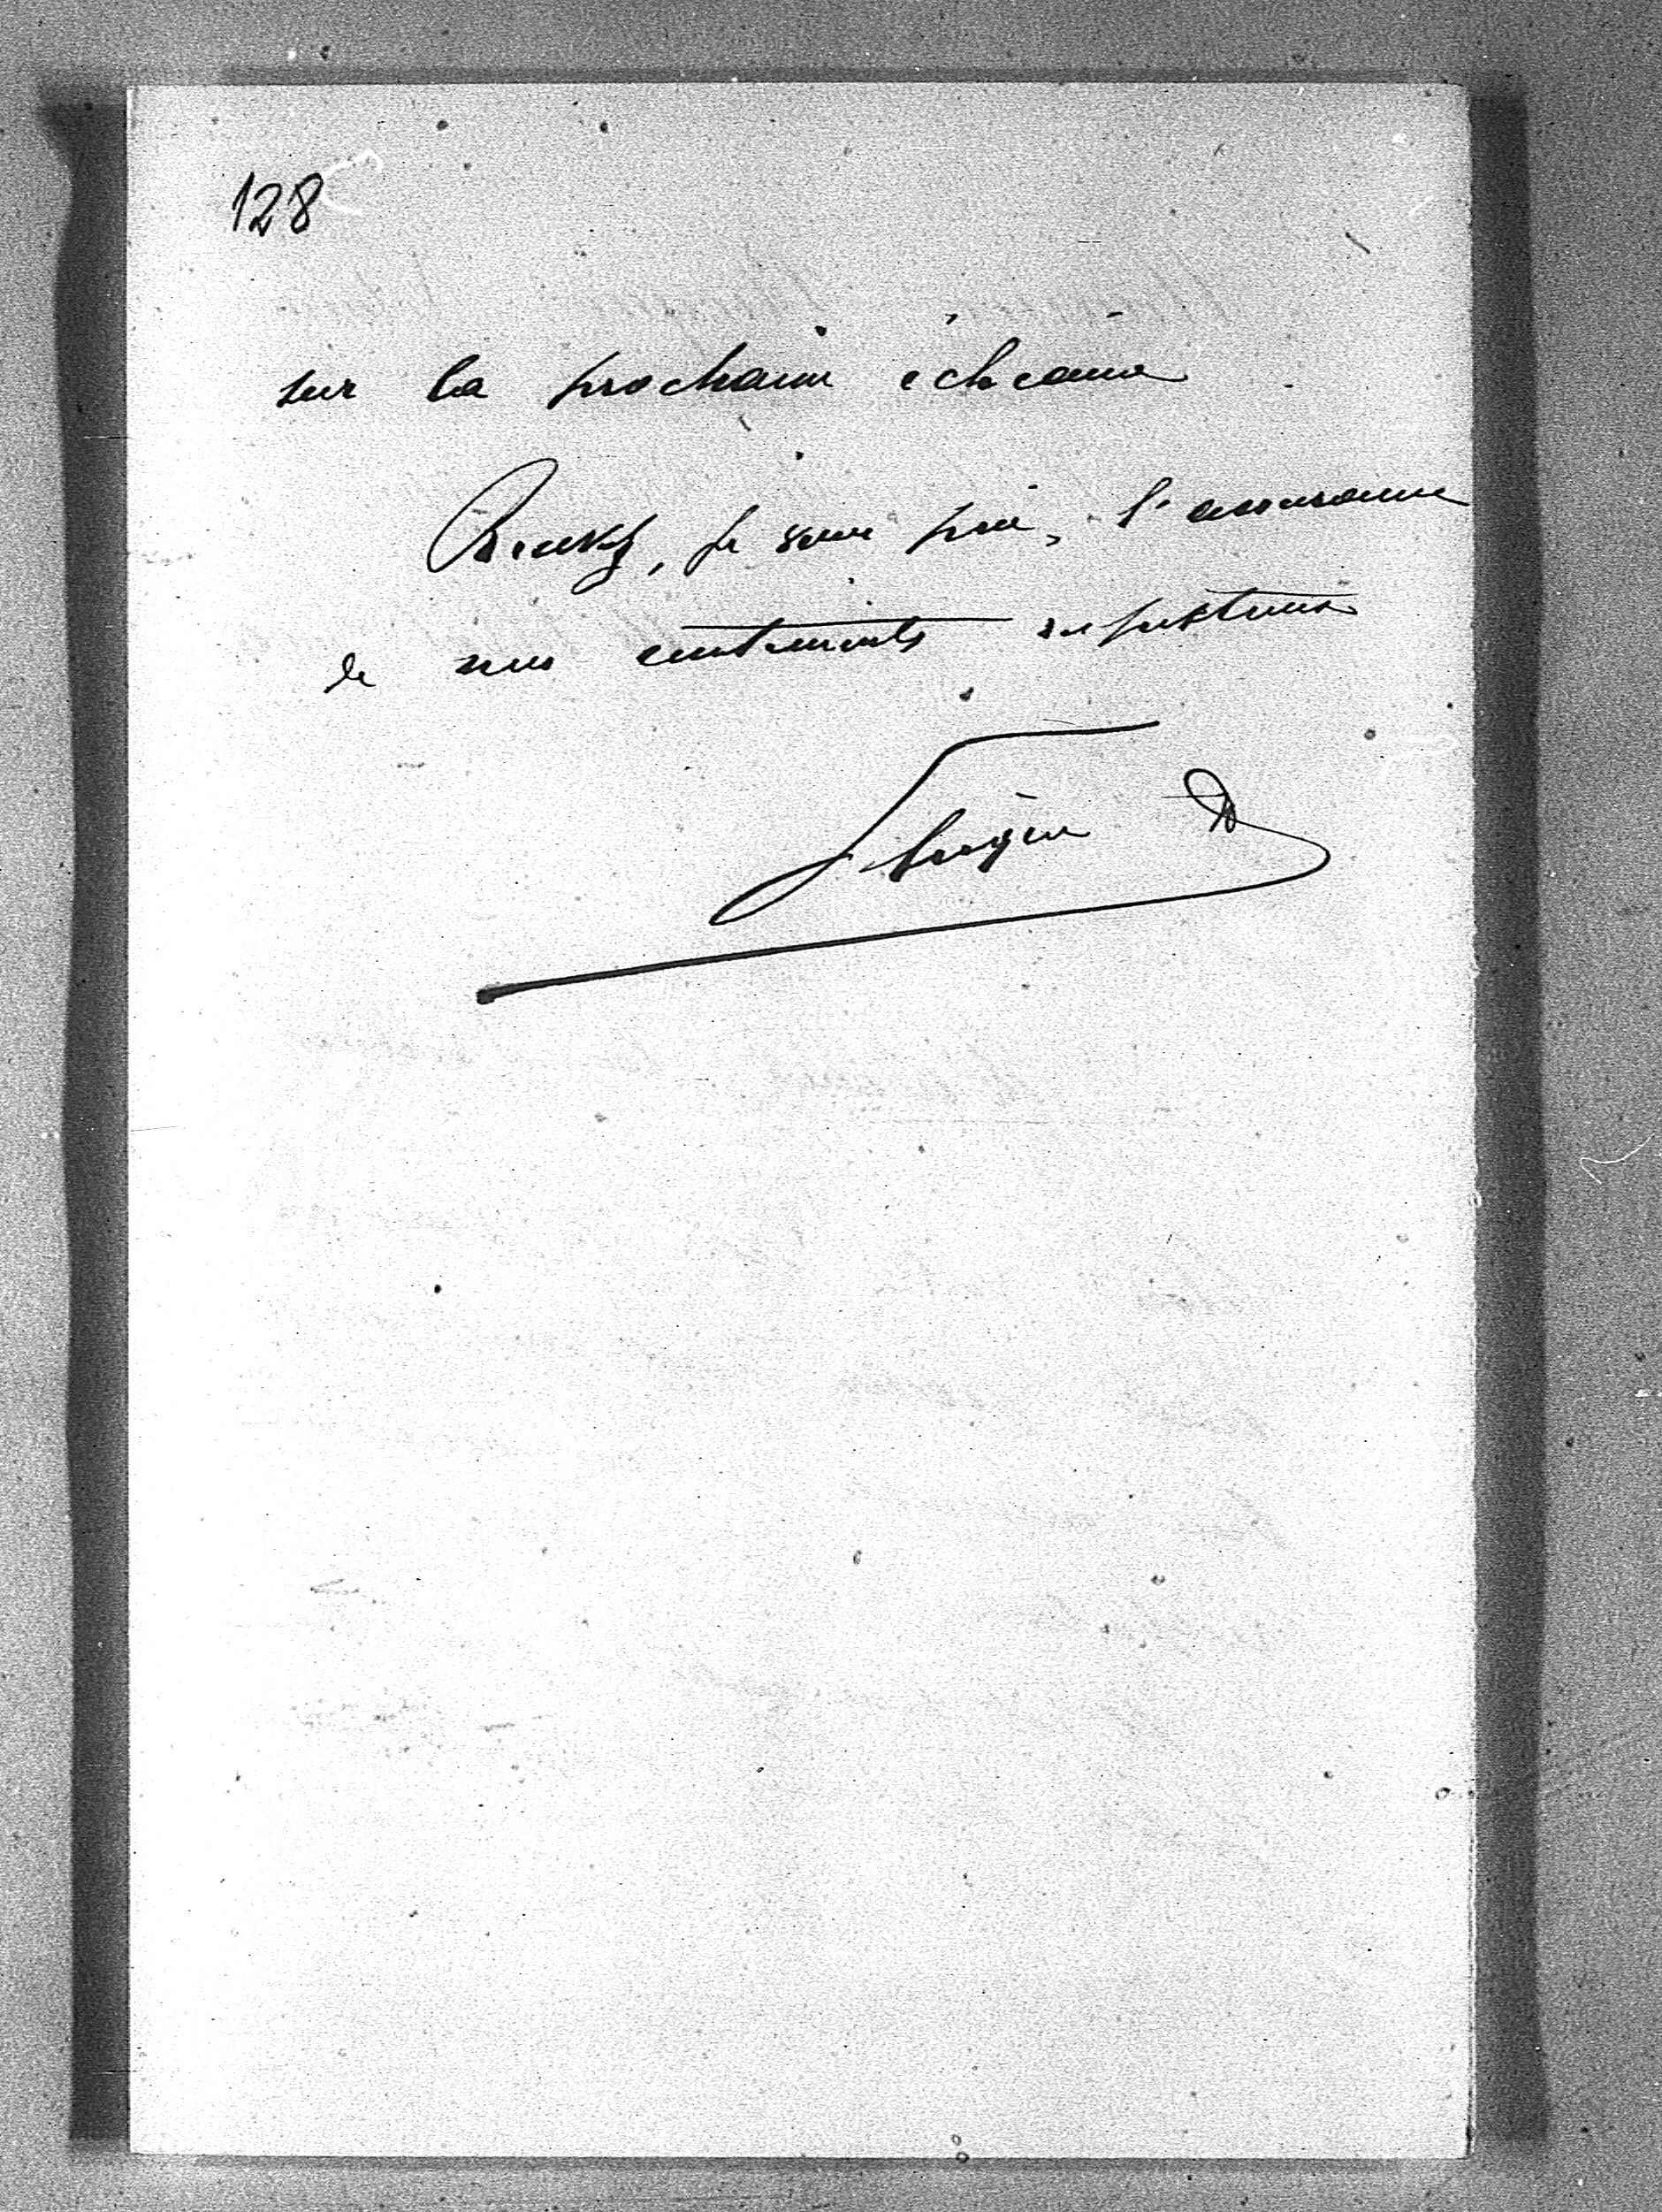 128
sur la prochaine échéance
Recevez, je vous prie, l'assurance
de mes sentiments respectueux